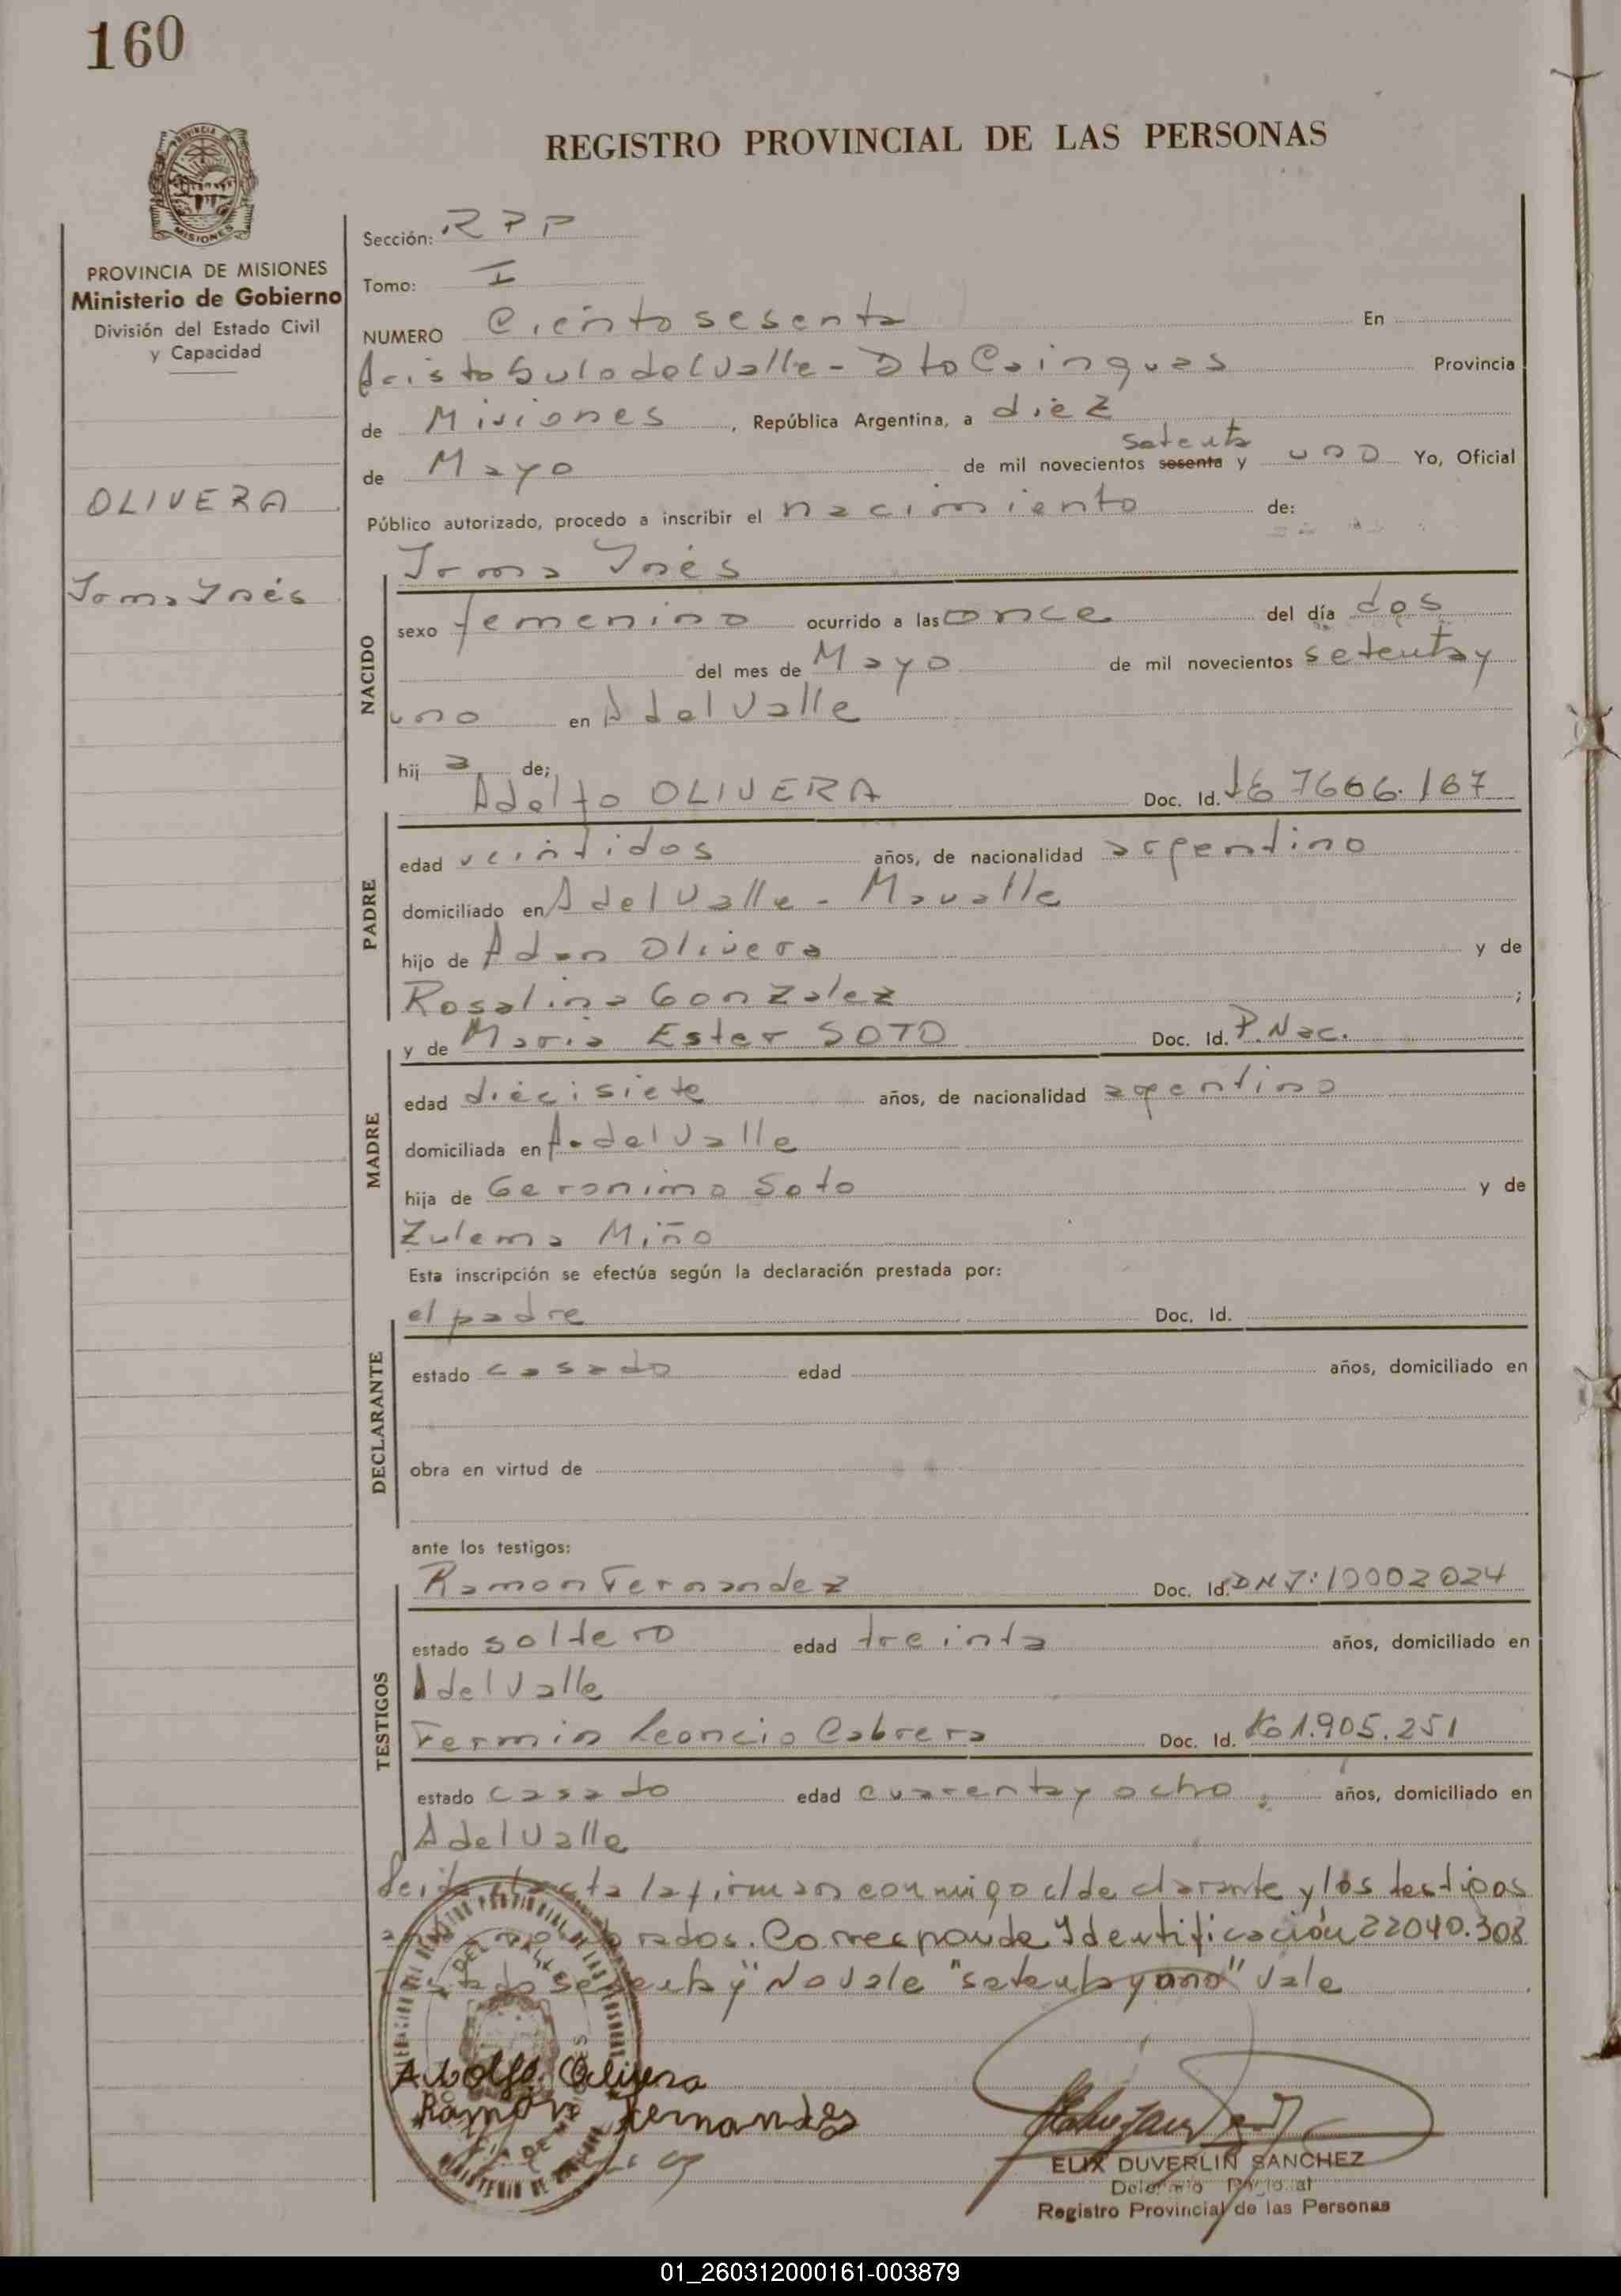 160
REGISTRO PROVINCIAL DE LAS PERSONAS
MISIONES
PROVINCIA DE MISIONES
Ministerio de Gobierno
División del Estado Civil
y Capacidad
OLIVERA
Irma Inés
Sección: RPP
Tomo: I
NUMERO Ciento sesenta En
Aristobulo del Valle - Dto Cainguas Provincia
de Misiones, República Argentina, a diez
setenta
de Mayo de mil novecientos sesenta y uno Yo, Oficial
Público autorizado, procedo a inscribir el nacimiento de:
Irma Inés
NACIDO
sexo femenino ocurrido a las once del día dos
del mes de Mayo de mil novecientos setenta y
uno en A del Valle
hij a de;
Adolfo OLIVERA Doc. Id. 7606.167
PADRE
edad veintidos años, de nacionalidad argentino
domiciliado en A del Valle - Mavalle
hijo de Adan Olivera y de
Rosalina Gonzalez ;
y de Maria Ester SOTO Doc. Id. P.Nac.
MADRE
edad diecisiete años, de nacionalidad agentina
domiciliada en A. del Valle
hija de Geronimo Soto y de
Zulema Miño
Esta inscripción se efectúa según la declaración prestada por:
el padre Doc. Id.
DECLARANTE
estado casado edad años, domiciliado en
obra en virtud de
ante los testigos:
Ramon Fernandez Doc. Id. DNI: 10002024
TESTIGOS
estado soltero edad treinta años, domiciliado en
A del Valle
Fermin Leoncio Cabrera Doc. Id. 1.905.251
estado casado edad cuarenta y ocho años, domiciliado en
A del Valle
Leida acta la firman conmigo el declarante y los testigos
Corresponde Identificación 22040.308
"No vale "setenta y uno" vale
Adolfo Olivera
Ramón Fernandes
ELIX DUVERLIN SANCHEZ
Registro Provincial de las Personas
01_260312000161-003879